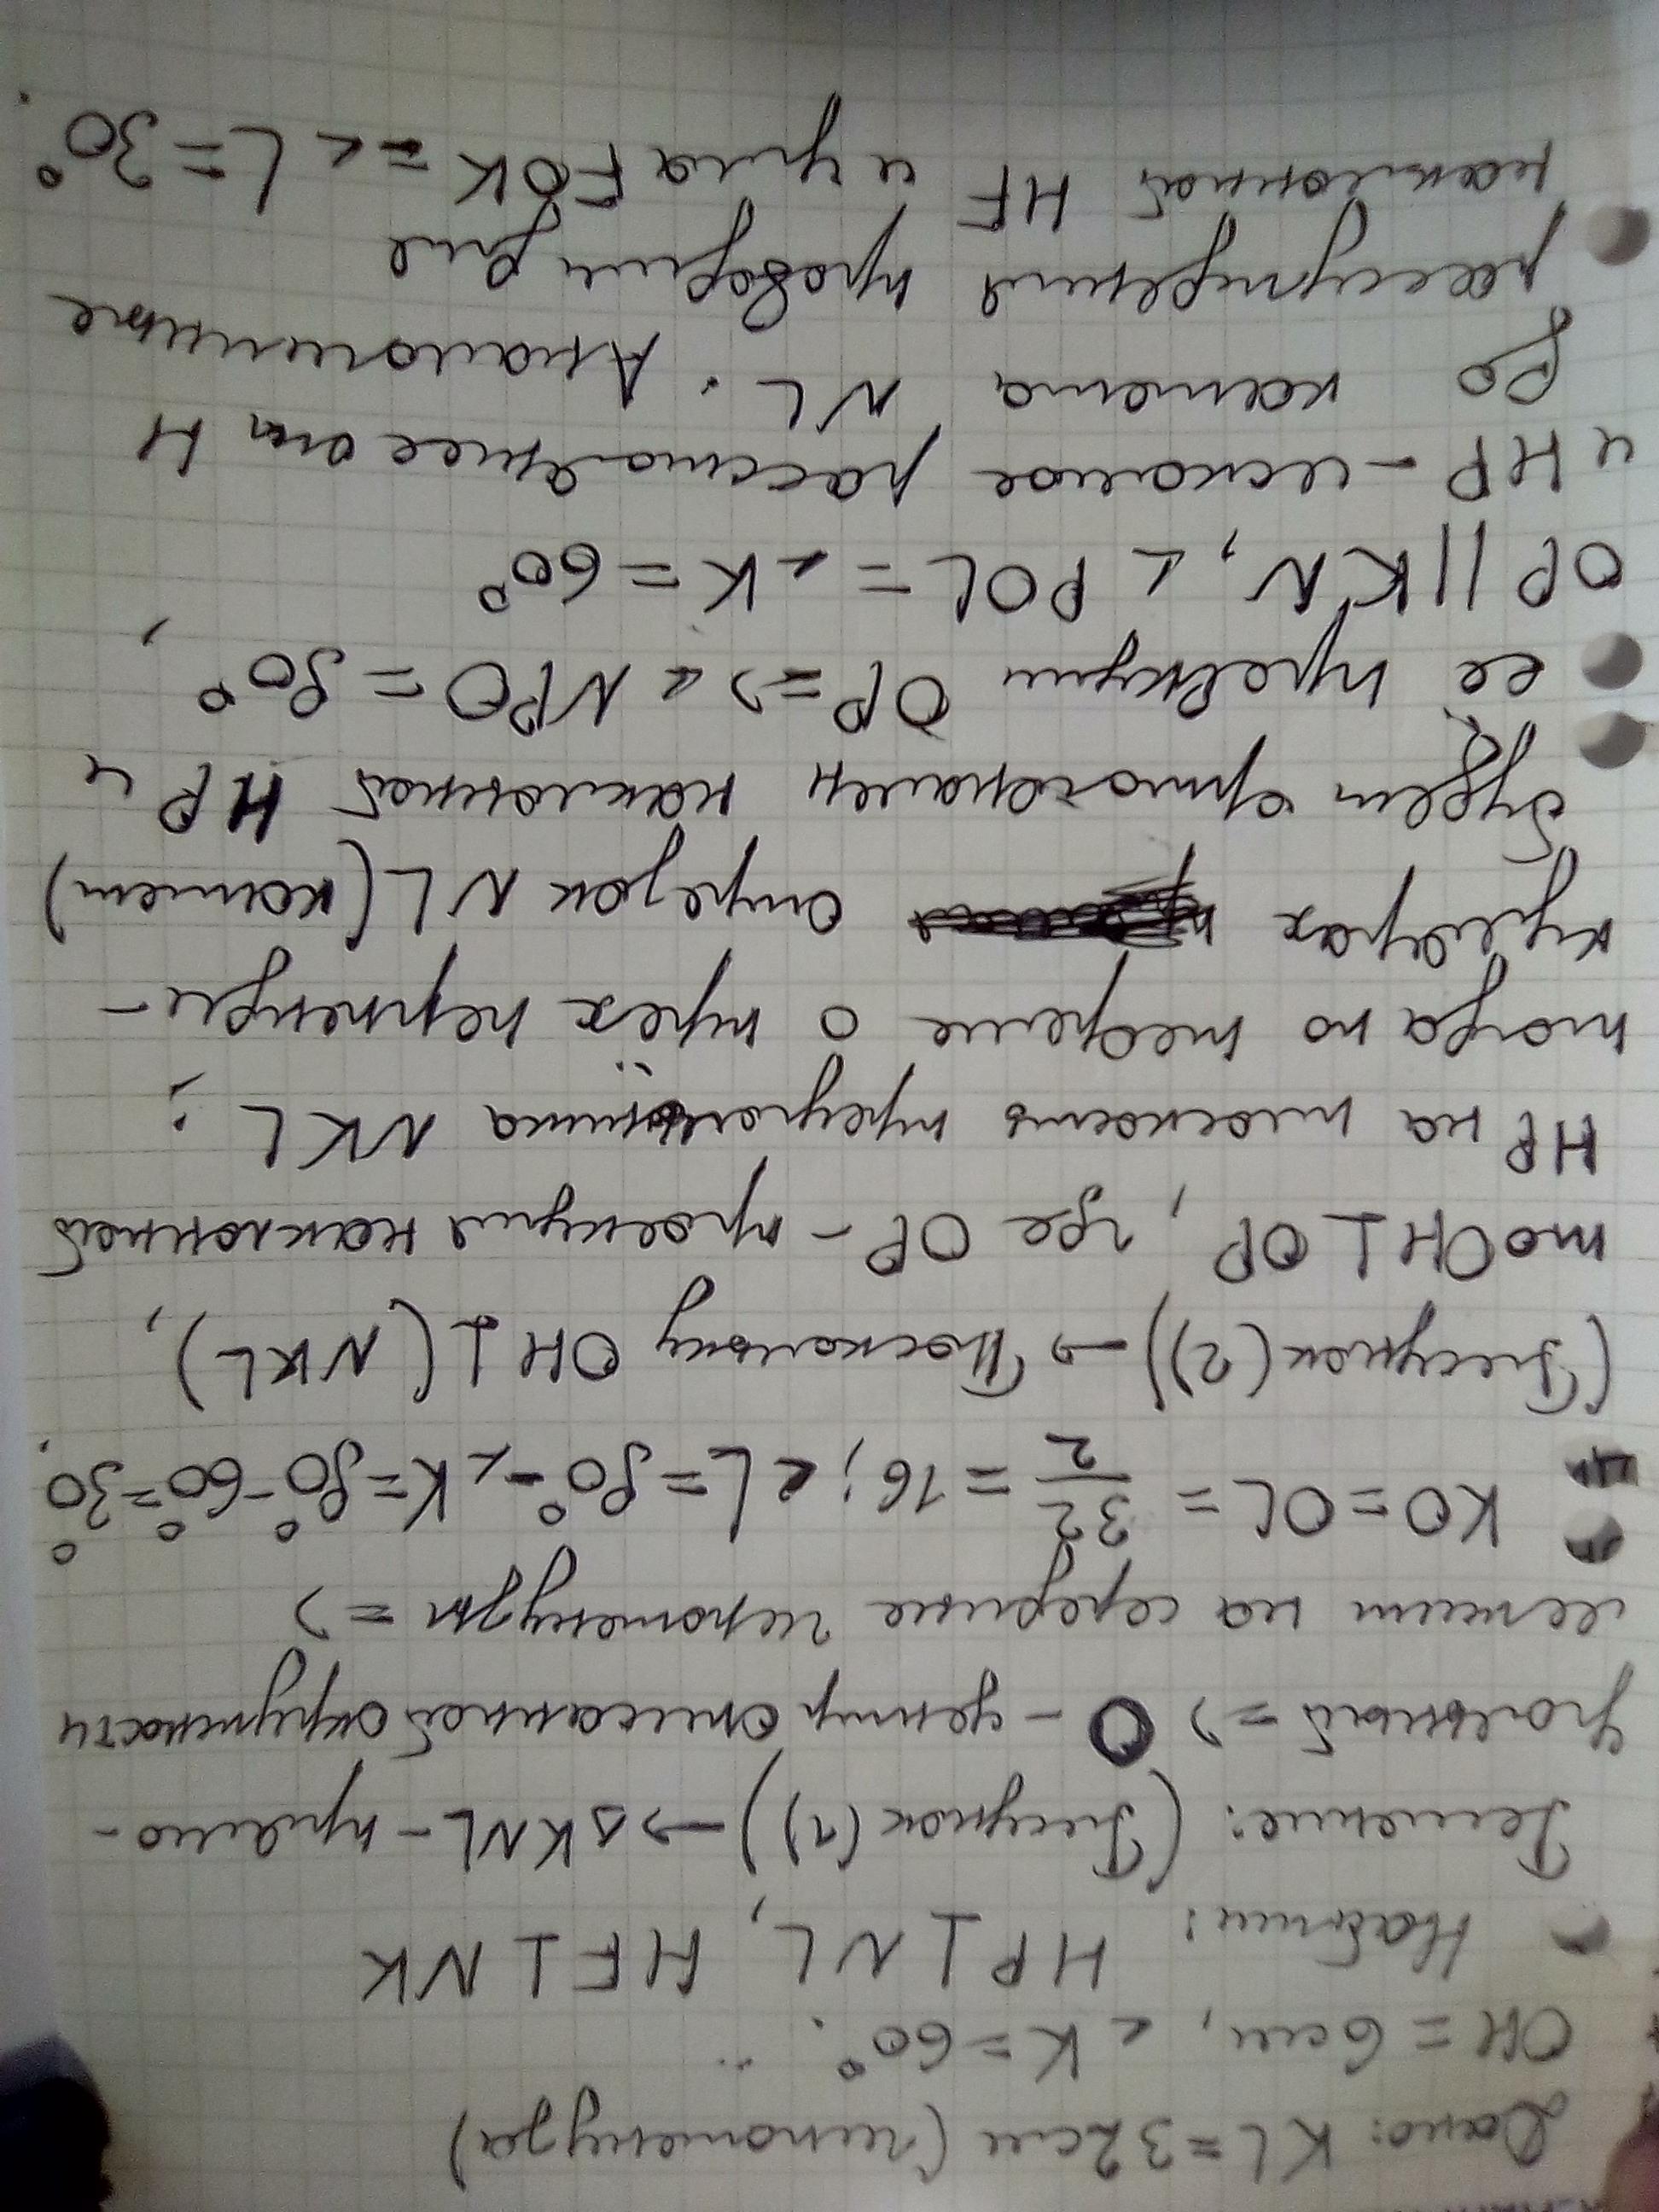 Дано: KL = 32см (гипотенуза)
OH = 6см, < K = 60°.
Найти: HP ⊥ NL, HF ⊥ NK
Решение: (Рисунок (1)) → △KNL - прямо-
угольный => O - центр описанной окружности
лежит на середине гипотенузы =>
KO = OL = 32/2 = 16; < L = 90° - < K = 90° - 60° = 30°.
(Рисунок (2)) → Поскольку OH ⊥ (NKL),
то OH ⊥ OP, где OP - проекция наклонной
HP на плоскость треугольника NKL;
тогда по теореме о трех перпенди-
кулярах отрезок NL (катет)
будет ортогонален наклонной HP и
ее проекции OP => < NPO = 90°,
OP || KN, < POL = < K = 60°
и HP - искомое расстояние от H
до катета NL. Аналогичные
рассуждения проводим для
наклонной HF и угла FOK = < L = 30°.